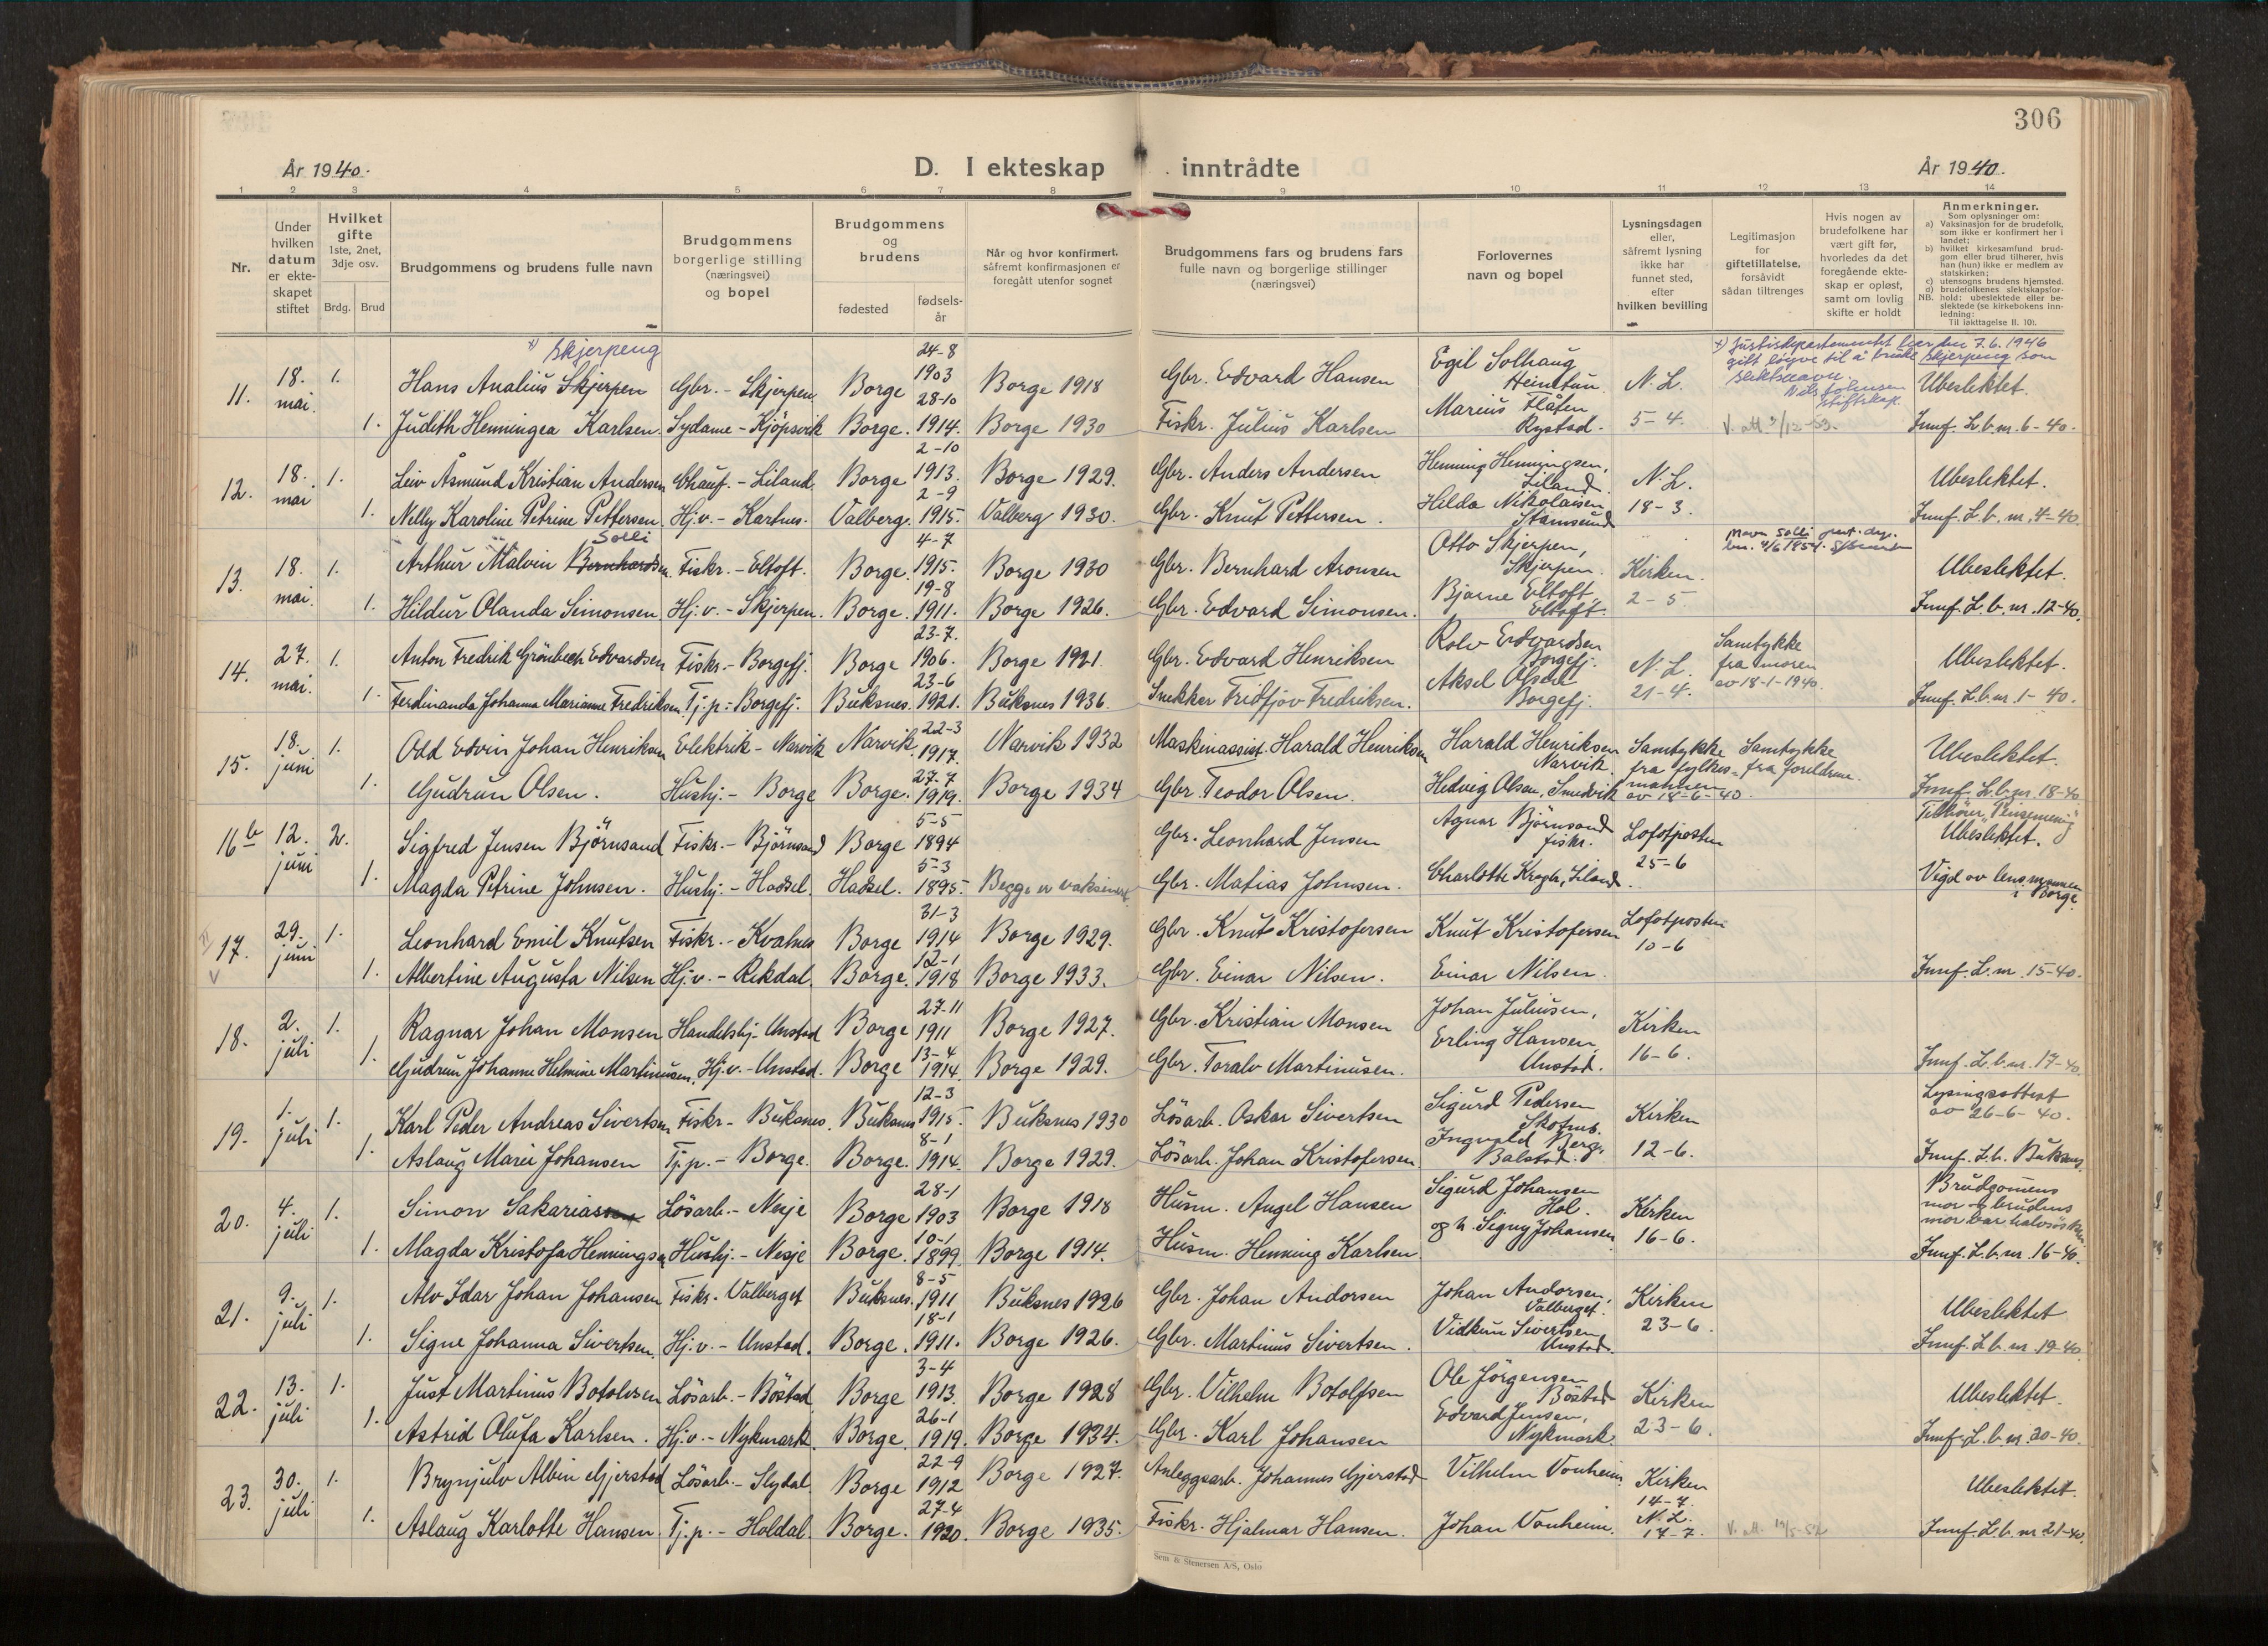 306
År 1940.
D. I ekteskap inntrådte
År 1940.
1 2 3 4 5 6 7 8 9 10 11 12 13 14
Nr.
Under hvilken datum er ekteskapet stiftet
Hvilket gifte 1ste, 2net, 3dje osv.
Brdg. Brud
Brudgommens og brudens fulle navn
Brudgommens borgerlige stilling (næringsvei) og bopel
Brudgommens og brudens
fødested
fødselsår
Når og hvor konfirmert, såfremt konfirmasjonen er foregått utenfor sognet
Brudgommens fars og brudens fars fulle navn og borgerlige stillinger (næringsvei)
Forlovernes navn og bopel
Lysningsdagen eller, såfremt lysning ikke har funnet sted, efter hvilken bevilling
Legitimasjon for giftetillatelse, forsåvidt sådan tiltrenges
Hvis nogen av brudefolkene har vært gift før, hvorledes da det foregående ekteskap er opløst, samt om lovlig skifte er holdt
Anmerkninger.
Som oplysninger om:
a) Vaksinasjon for de brudefolk, som ikke er konfirmert her i landet;
b) hvilket kirkesamfund brudgom eller brud tilhører, hvis han (hun) ikke er medlem av statskirken;
c) utensogns brudens hjemsted.
d) brudefolkenes slektskapsforhold: ubeslektede eller beslektede (se kirkebokens innledning:
NB. Til iakttagelse II. 10).
x) Skjerpeng
x) Justisdepartementet har den 7.6.1946
gitt løyve til å bruke Skjerpeng som
slektsnavn.
11. 18. mai. 1. Hans Analius Skjerpen Gbr. - Skjerpen. Borge 24-8 1903 Borge 1918 Gbr. Edvard Hansen Egil Solhaug Heimtun N.L. Ubeslektet.
1. Judith Henningea Karlsen. Sydame - Kjöpsvik Borge. 28-10 1914. Borge 1930 Fiskr. Julius Karlsen Marius Flåten Rystad. 5-4. Jmnf. L.b.nr. 6-40.
12. 18. mai 1. Leiv Åsmund Kristian Andersen Chauf. - Liland. Borge 2-10 1913. Borge 1929. Gbr. Anders Andersen Henning Henningsen, Liland. N.L. Ubeslektet.
1. Nelly Karoline Petrine Pettersen. Hj.v. - Kartnes. Valberg. 2-9 1915. Valberg 1930. Gbr. Knut Pettersen. Hilda Nikolaisen Stamsund 18-3. Jmnf. L.b. nr. 4-40.
Solli
13. 18. mai. 1. Arthur Malvin Bernhardsen. Fiskr. - Eltoft. Borge. 4-7 1915. Borge 1930 Gbr. Bernhard Aronsen Otto Skjerpen, Skjerpen. Kirken. Ubeslektet.
1. Hildur Olanda Simonsen Hj.v. - Skjerpen. Borge. 19-8 1911. Borge 1926. Gbr. Edvard Simonsen. Bjarne Eltoft, Eltoft. 2-5 Jmnf. L.b. nr. 12-40.
14. 27. mai. 1. Anton Fredrik Grönbech Edvardsen Fiskr. - Borgefj. Borge 23-7. 1906. Borge 1921. Gbr. Edvard Henriksen Rolv Edvardsen Borgefj. N.L. Samtykke fra moren av 18-1-1940. Ubeslektet.
1. Ferdinanda Johanna Marianne Fredriksen. Tj.p. - Borgefj. Buksnes. 23-6 1921. Buksnes 1936. Snekker Fridtjov Fredriksen. Aksel Olsen Borgefj. 21-4. Jmnf. L.b.nr. 1-40.
15. 18. juni 1. Odd Edvin Johan Henriksen Elektrik - Narvik Narvik 22-3 1917. Narvik 1932 Maskinassist. Harald Henriksen Harald Henriksen Narvik. Samtykke fra fylkesmannen av 18-6-40 Samtykke fra foreldrene. Ubeslektet.
1. Gudrun Olsen. Hushj. - Borge Borge. 27-7 1919. Borge 1934 Gbr. Teodor Olsen. Hedvig Olsen, Smedvik Jmnf. L.b.nr. 18-40
16b 12. juni 2. Sigfred Jensen Björnsand Fiskr. - Björnsand Borge 5-5 1894 Gbr. Leonhard Jensen Agnar Björnsand fiskr. Lofotposten 25-6 Ubeslektet.
1. Magda Petrine Johnsen. Hushj. - Hadsel. Hadsel. 5-3 1895 Begge er vaksinert. Gbr. Matias Johnsen. Charlotte Krogh, Liland. Vigd av lensmannen i Borge.
17. 29. juni 1. Leonhard Emil Knutsen Fiskr. - Kvalnes Borge 31-3 1914 Borge 1929. Gbr. Knut Kristofersen Knut Kristofersen Lofotposten 10-6
1. Albertine Augusta Nilsen Hj.v. - Rekdal. Borge. 12-1 1918 Borge 1933. Gbr. Einar Nilsen. Einar Nilsen. Jmnf. L.nr. 15-40.
18. 2. juli 1. Ragnar Johan Monsen Handelshj. Unstad Borge 27-11 1911 Borge 1927. Gbr. Kristian Monsen Johan Juliusen, Kirken
1. Gudrun Johanne Helmine Martinusen. Hj.v. - Unstad. Borge 13-4 1914. Borge 1929. Gbr. Toralv Martinusen. Erling Hansen, Unstad. 16-6. Jmnf. L.b.nr. 17-40.
19. 1. juli 1. Karl Peder Andreas Sivertsen Fiskr - Buksnes. Buksnes 12-3 1915 Buksnes 1930 Lösarb. Oskar Sivertsen Sigurd Pedersen Kirken Lysingsattest av 26-6-40.
1. Aslaug Marie Johansen Tj.p. - Borge. Borge. 8-1 1914. Borge 1929. Lösarb. Johan Kristofersen. Ingvald Berg, Balstad. 12-6. Jmnf. L.b. Buksnes.
20. 4. juli 1. Simon Sakariassen Lösarb. - Nesje Borge 28-1 1903 Borge 1918 Husm. Angel Hansen Sigurd Johansen Hol. Kirken Brudgomens mor og brudens mor var halvsösken
1. Magda Kristofa Henningsen Hushj. - Nesje Borge. 10-1 1899 Borge 1914. Husm. Henning Karlsen og h. Signy Johansen 16-6. Jmnf. L.b.nr. 16-40.
21. 9. juli 1. Alv Idar Johan Johansen Fiskr. Valberget Buksnes. 8-5 1911 Buksnes 1926 Gbr. Johan Andorsen Johan Andorsen, Valberget. Kirken Ubeslektet
1. Signe Johanna Sivertsen. Hj.v. - Unstad. Borge. 18-1 1911. Borge 1926. Gbr. Martinus Sivertsen. Vidkun Sivertsen Unstad. 23-6. Jmnf. L.b. nr. 19-40.
22. 13. juli 1. Just Martinus Botolvsen Lösarb. - Böstad Borge 3-4 1913. Borge 1928 Gbr. Vilhelm Botolfsen Ole Jörgensen Böstad Kirken Ubeslektet.
1. Astrid Olufa Karlsen. Hj.v. - Nykmark. Borge. 26-1 1919. Borge 1934. Gbr. Karl Johansen Edvard Jensen, Nykmark. 23-6. Jmnf. L.b.nr. 20-40.
23. 30. juli 1. Brynjulv Albin Gjerstad Lösarb. - Slydal. Borge 22-9 1912 Borge 1927. Anleggsarb. Johannes Gjerstad Vilhelm Vonheim. Kirken 14-7. Ubeslektet.
1. Aslaug Karlotte Hansen. Tj.p. - Holdal. Borge. 27-4 1920. Borge 1935. Fiskr. Hjalmar Hansen. Johan Vonheim. N.L. 14-7. Jmnf. L.b. nr 21-40.
Sem & Stenersen A/S, Oslo